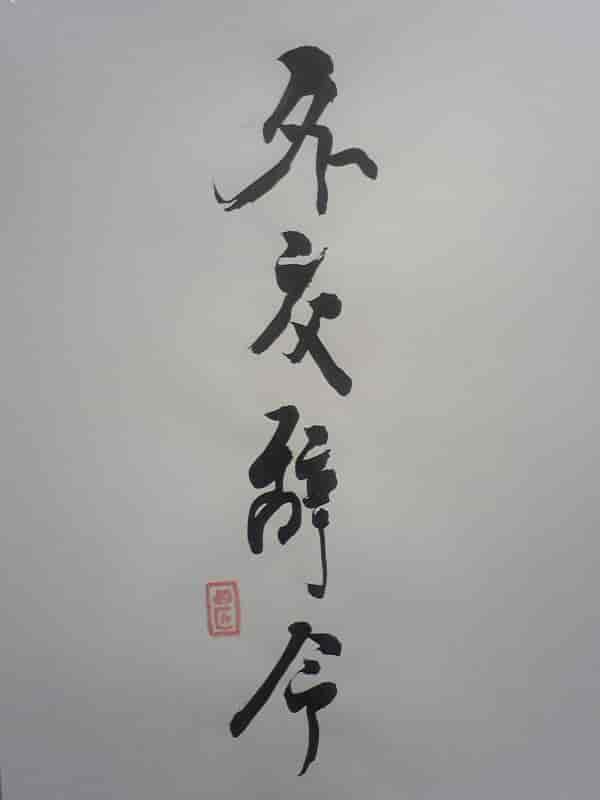 外交辞令